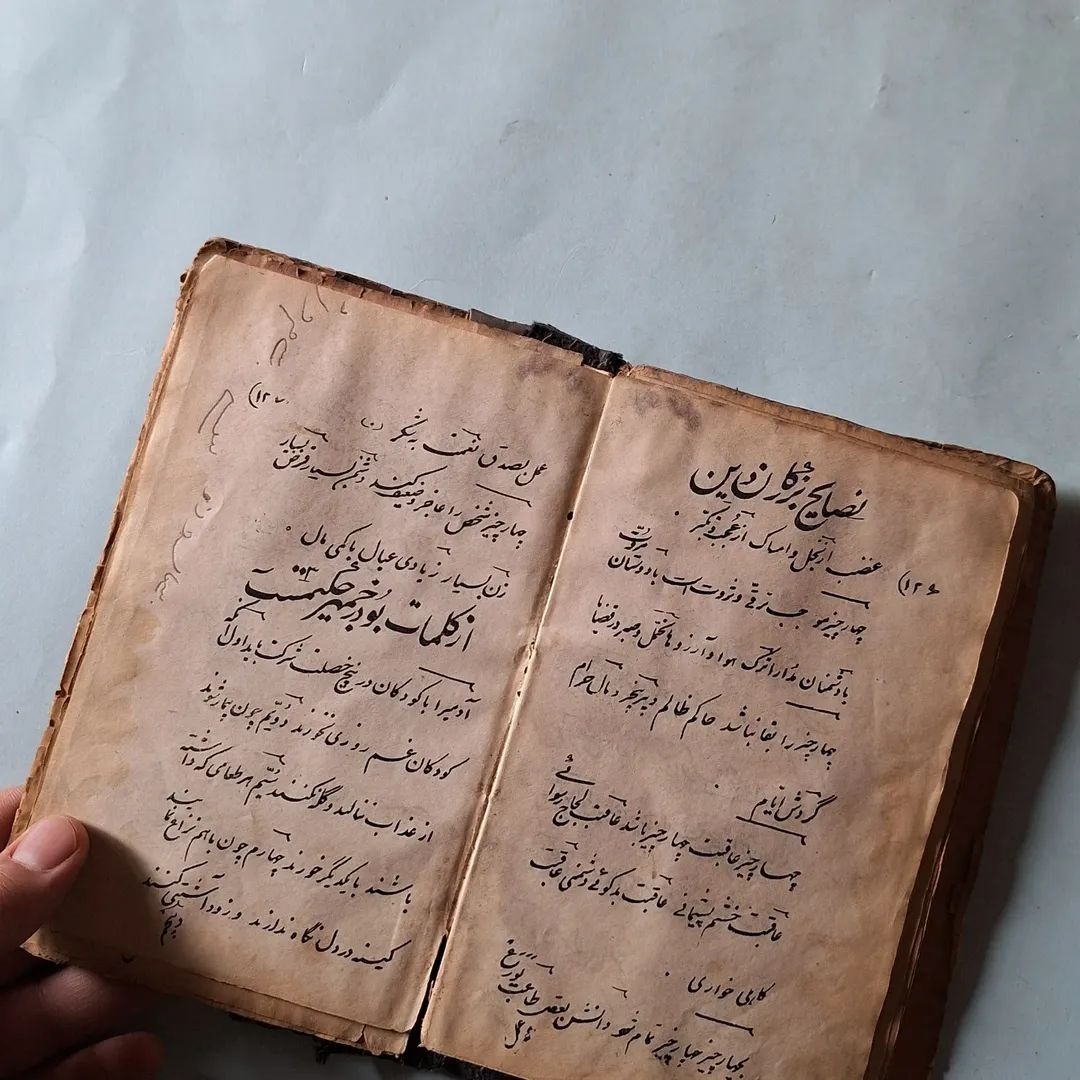 (۱۲۶
نصایح بزرگان دین
غضب از بخل و امساک از عجب و تکبر
چهار چیز موجب ترقی و ثروت است با دوستان مروت
با دشمنان مدارا ترک هوا و آرزوها تحمل و صبر در قضایا
چهار چیز را بقا نباشد حاکم ظالم و مال حرام
گردش ایام
چهار چیز عاقبت چهار چیز باشد عاقبت لجاج رسوائی
عاقبت خشم پشیمانی عاقبت بدگوئی دشمنی عاقبت
کاهلی خواری
بچهار چیز چهار چیز تمام شود دانش بعقل طاعت بورع
عمل
(۱۲۷
عمل بصدق نعمت به شکر
چهار چیز شخص را عاجز و ضعیف کند دشمن بسیار قرض بسیار
زن بسیار زیادی عیال با کمی مال
از کلمات بوذرجمهر حکیمست
آدمیرا با کودکان در پنج خصلت شرکت باید اول آنکه
کودکان غم روزی نخورند دویّم چون بیمار شوند
از عذاب ننالند و گله نکنند سیّم هر طعامی که داشته
باشند با یکدیگر خورند چهارم چون با هم نزاع نمایند
کینه در دل نگاه ندارند و زود آشتی کنند
پنجم